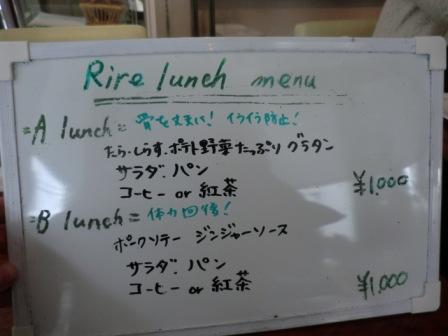 Rire lunch menu
=A lunch= 骨を丈夫に! イライラ防止!
たら・しらす・ポテト野菜たっぷりグラタン
サラダ. パン
コーヒー or 紅茶 ¥1,000
=B lunch= 体力回復!
ポークソテー ジンジャーソース
サラダ. パン
コーヒー or 紅茶 ¥1,000